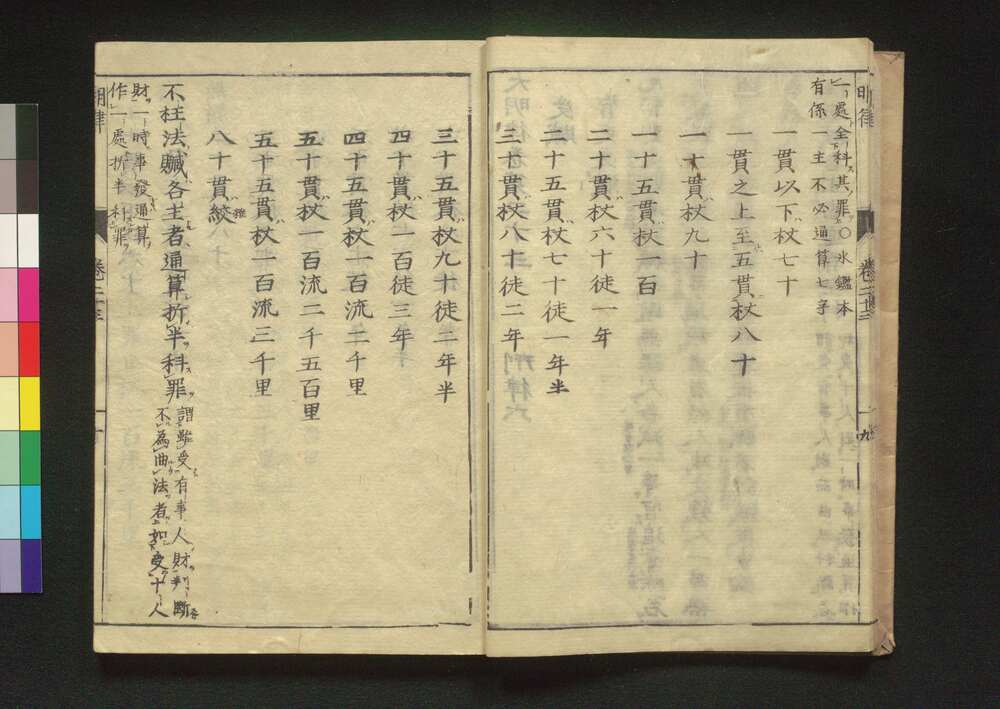 明律
卷二十三
九
一處全科其罪○氷鑑本
有係一主不必通算七字
一貫以下杖七十
一貫之上至五貫杖八十
一十貫杖九十
一十五貫杖一百
二十貫杖六十徒一年
二十五貫杖七十徒一年半
三十貫杖八十徒二年
三十五貫杖九十徒二年半
四十貫杖一百徒三年
四十五貫杖一百流二千里
五十貫杖一百流二千五百里
五十五貫杖一百流三千里
八十貫絞
不枉法贓各主者通算折半科罪
謂雖受有事人財判斷
不為曲法者如受十人
財一時事發通算
作一處折半科罪
明律
卷二十三
十